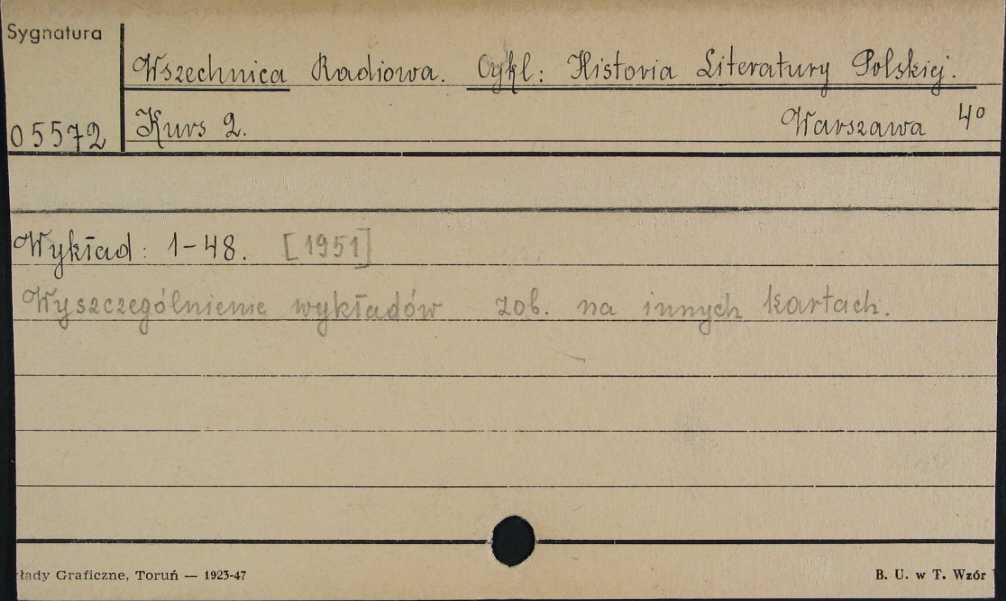 Sygnatura
Wszechnica Radiowa. Cykl: Historia Literatury Polskiej.
05572 Kurs 2. Warszawa 4°
Wykład: 1-48. [1951]
Wyszczególnienie wykładów zob. na innych kartach.
łady Graficzne, Toruń — 1923-47 B. U. w T. Wzór